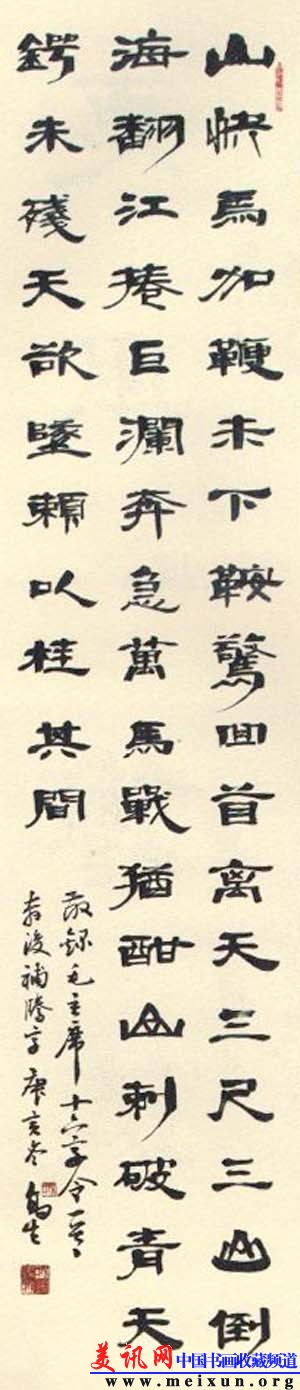 山快馬加鞭未下鞍驚回首离天三尺三山倒
海翻江捲巨瀾奔急萬馬戰猶酣山刺破青天
鍔未殘天欲墜賴以柱其間
敬録毛主席十六字令
補 字 亥冬 生
美讯网 中国书画收藏频道
www.meixun.org